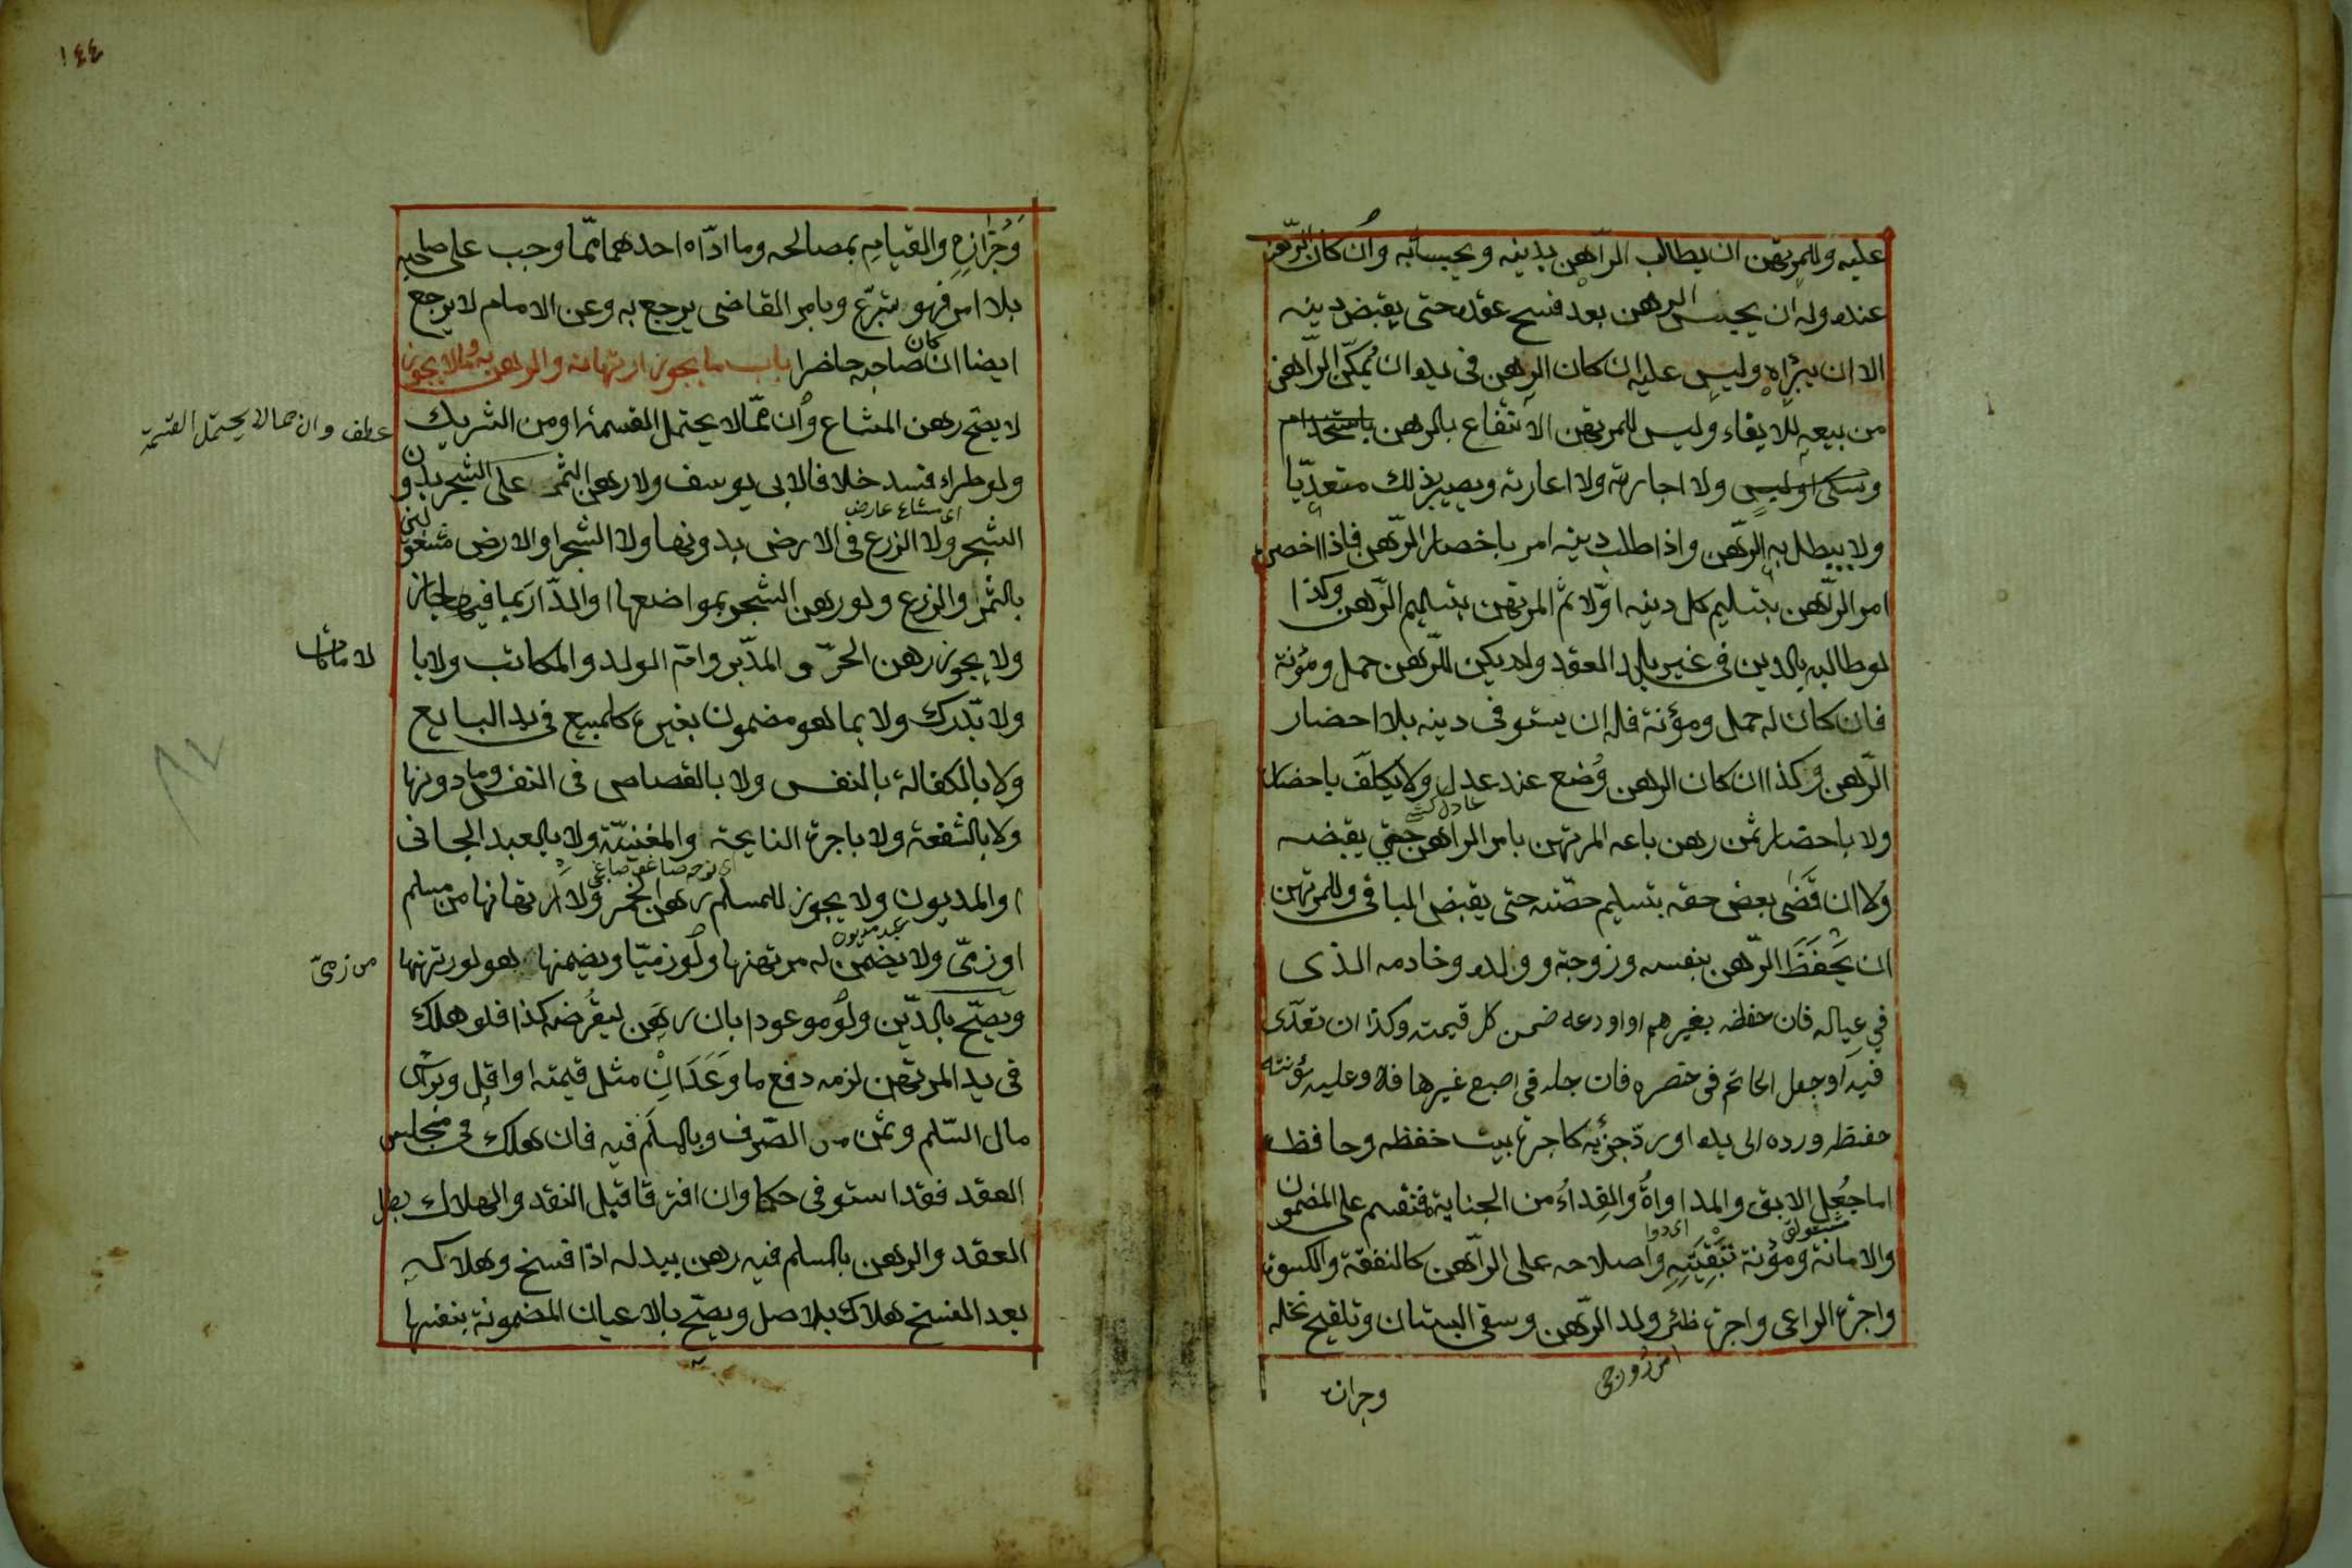 عليه وللمرتهن ان يطالب الراهن بدينه ويحبسابه وان كان الرهن
عنده وله ان يحبس الرهن بعد فسخ عقده حتى يقبض دينه
الا ان يبرأه وليس عليه ان كان الرهن فى يده ان يمكّن الرّاهن
من بيعه للايفاء وليس للمرتهن الانتفاع بالرهن باستخدام
وسكنى ولبس ولا اجارته ولا اعارته ويصير بذلك متعدّيا
ولا يبطل به الرّهن واذا طلب دينه امر باحضار الرّهن فاذا احضر
امر الرّاهن بتسليم كل دينه اوّلا ثم المرتهن بتسليم الرّهن وكذا
لو طالبه بالدين فى غير بلد العقد ولم يكن للرّهن حمل ومؤنة
فان كان له حمل ومؤنة فله ان يستوفى دينه بلا احضار
الرّهن وكذا ان كان الرهن وُضع عند عدل ولا يكلّف باحضار
عادل كشى
ولا باحضار ثمن رهن باعه المرتهن بامر الراهن حتي يقبضه
ولا ان قَضى بعض حقه بتسليم حصّته حتى يقبض الباقى وللمرتهن
ان يَحْفَظَ الرّهن بنفسه وزوجته وولده وخادمه الذى
في عياله فان حفظه بغيرهم او اودعه ضمن كل قيمته وكذا ان تعدّى
فيه او جعل الخاتم فى خنصره فان جعله فى اصبع غيرها فلا وعليه مؤنته
حفظه ورده الى يده او ردّ جزئه كاجرة بيت حفظه وحافظه
اما جُعل الابق والمداواةُ والفداءُ من الجناية فتقسم على المضمون
اى دوا
والامانة ومؤنة تبقيَتِهِ واصلاحه على الرّاهن كالنفقة والكسوة
واجرة الراعى واجرة ظئر ولد الرّهن وسقى البستان وتلقيح نخله
وجزازه
١٤٤
وجُزازِهِ والقيامِ بمصالحه وما ادّاه احدهما ممّا وجب على صاحبه
بلا امر فهو تبرّع وبامر القاضى يرجع به وعن الامام لا يرجع
ايضا ان كان صاحبه حاضرا باب ما يجوز ارتهانه والرهن به وما لا يجوز
لا يصح رهن المشاع وان ممّا لا يحتمل القسمة او من الشريك
عطف وان مما لا يحتمل القسمة
ولو طراء فسد خلافا لابى يوسف ولا رهن الثمر على الشجر بدون
اى مشاع عارض
الشجر ولا الزرع فى الارض بدونها ولا الشجر او الارض مشغولين
بالثمر والزرع ولو رهن الشجر بمواضعها او الدّار بما فيها جاز
ولا يجوز رهن الحرّ و المدبّر وامّ الولد والمكاتب ولا با
لامانات
ولا بّدرك ولا بما هو مضمون بغيره كالمبيع فى يد البايع
ولا بالكفالة بالنفس ولا بالقصاص فى النفس وما دونها
ولا بالشفعة ولا باجرة النايحة والمغنيّة ولا بالعبد الجانى
او المديون ولا يجوز للمسلم رهن الخمر ولا ارتهانها من مسلم
عبد مديون
او زمّى ولا يضمن له مرتهنها ولو زميّا ويضمنها هو لو رتهنها
من زمىّ
ويصحّ بالدّين ولو موعودا بان رهن ليقُرضه كذا فلو هلك
فى يد المرتهن لزمه دفع ما وَعَدَ انْ مثل قيمته او اقل وبراس
مال السّلم وثمن من الصّرف وبالمسلَم فيه فان هلك فى مجلس
العقد فقد استوفى حكما وان افترقا قبل النقد والهلاك بطل
العقد والرهن بالمسلم فيه رهن ببدله اذا فسخ وهلاكه
بعد الفسخ هلاك بلاصل ويصحّ بالاعيان المضمونة بنفسها